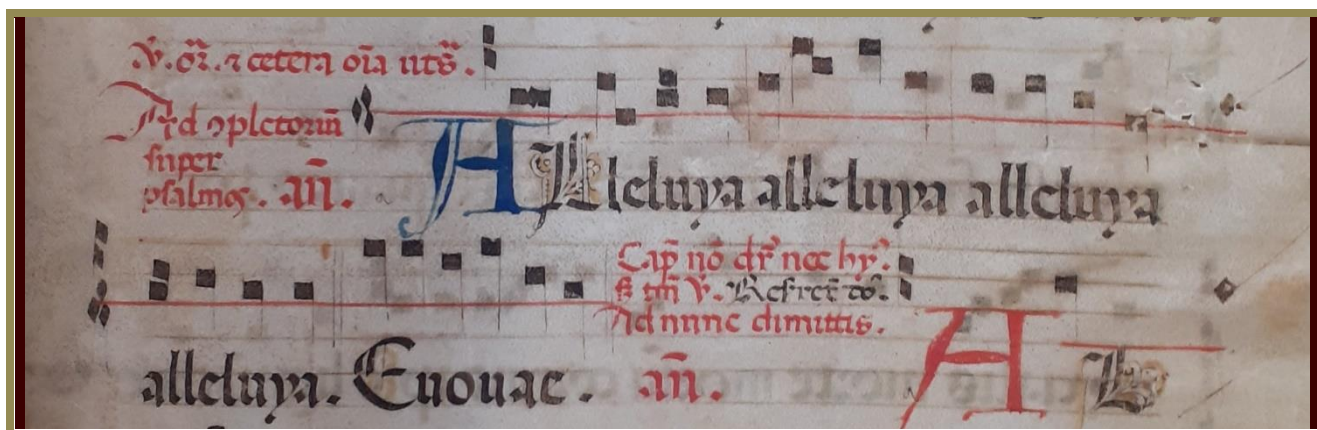 V̾. or̄. ⁊ cetera oīa uts̄.
Ad ↄpletoriū
super
psalmos. an̄.
Alleluya alleluya alleluya
Cap̄ nō dr̄ nec hy̾.
tm̄ V̾.
Ad nunc dimittis.
alleluya. Euouae. an̄. Al